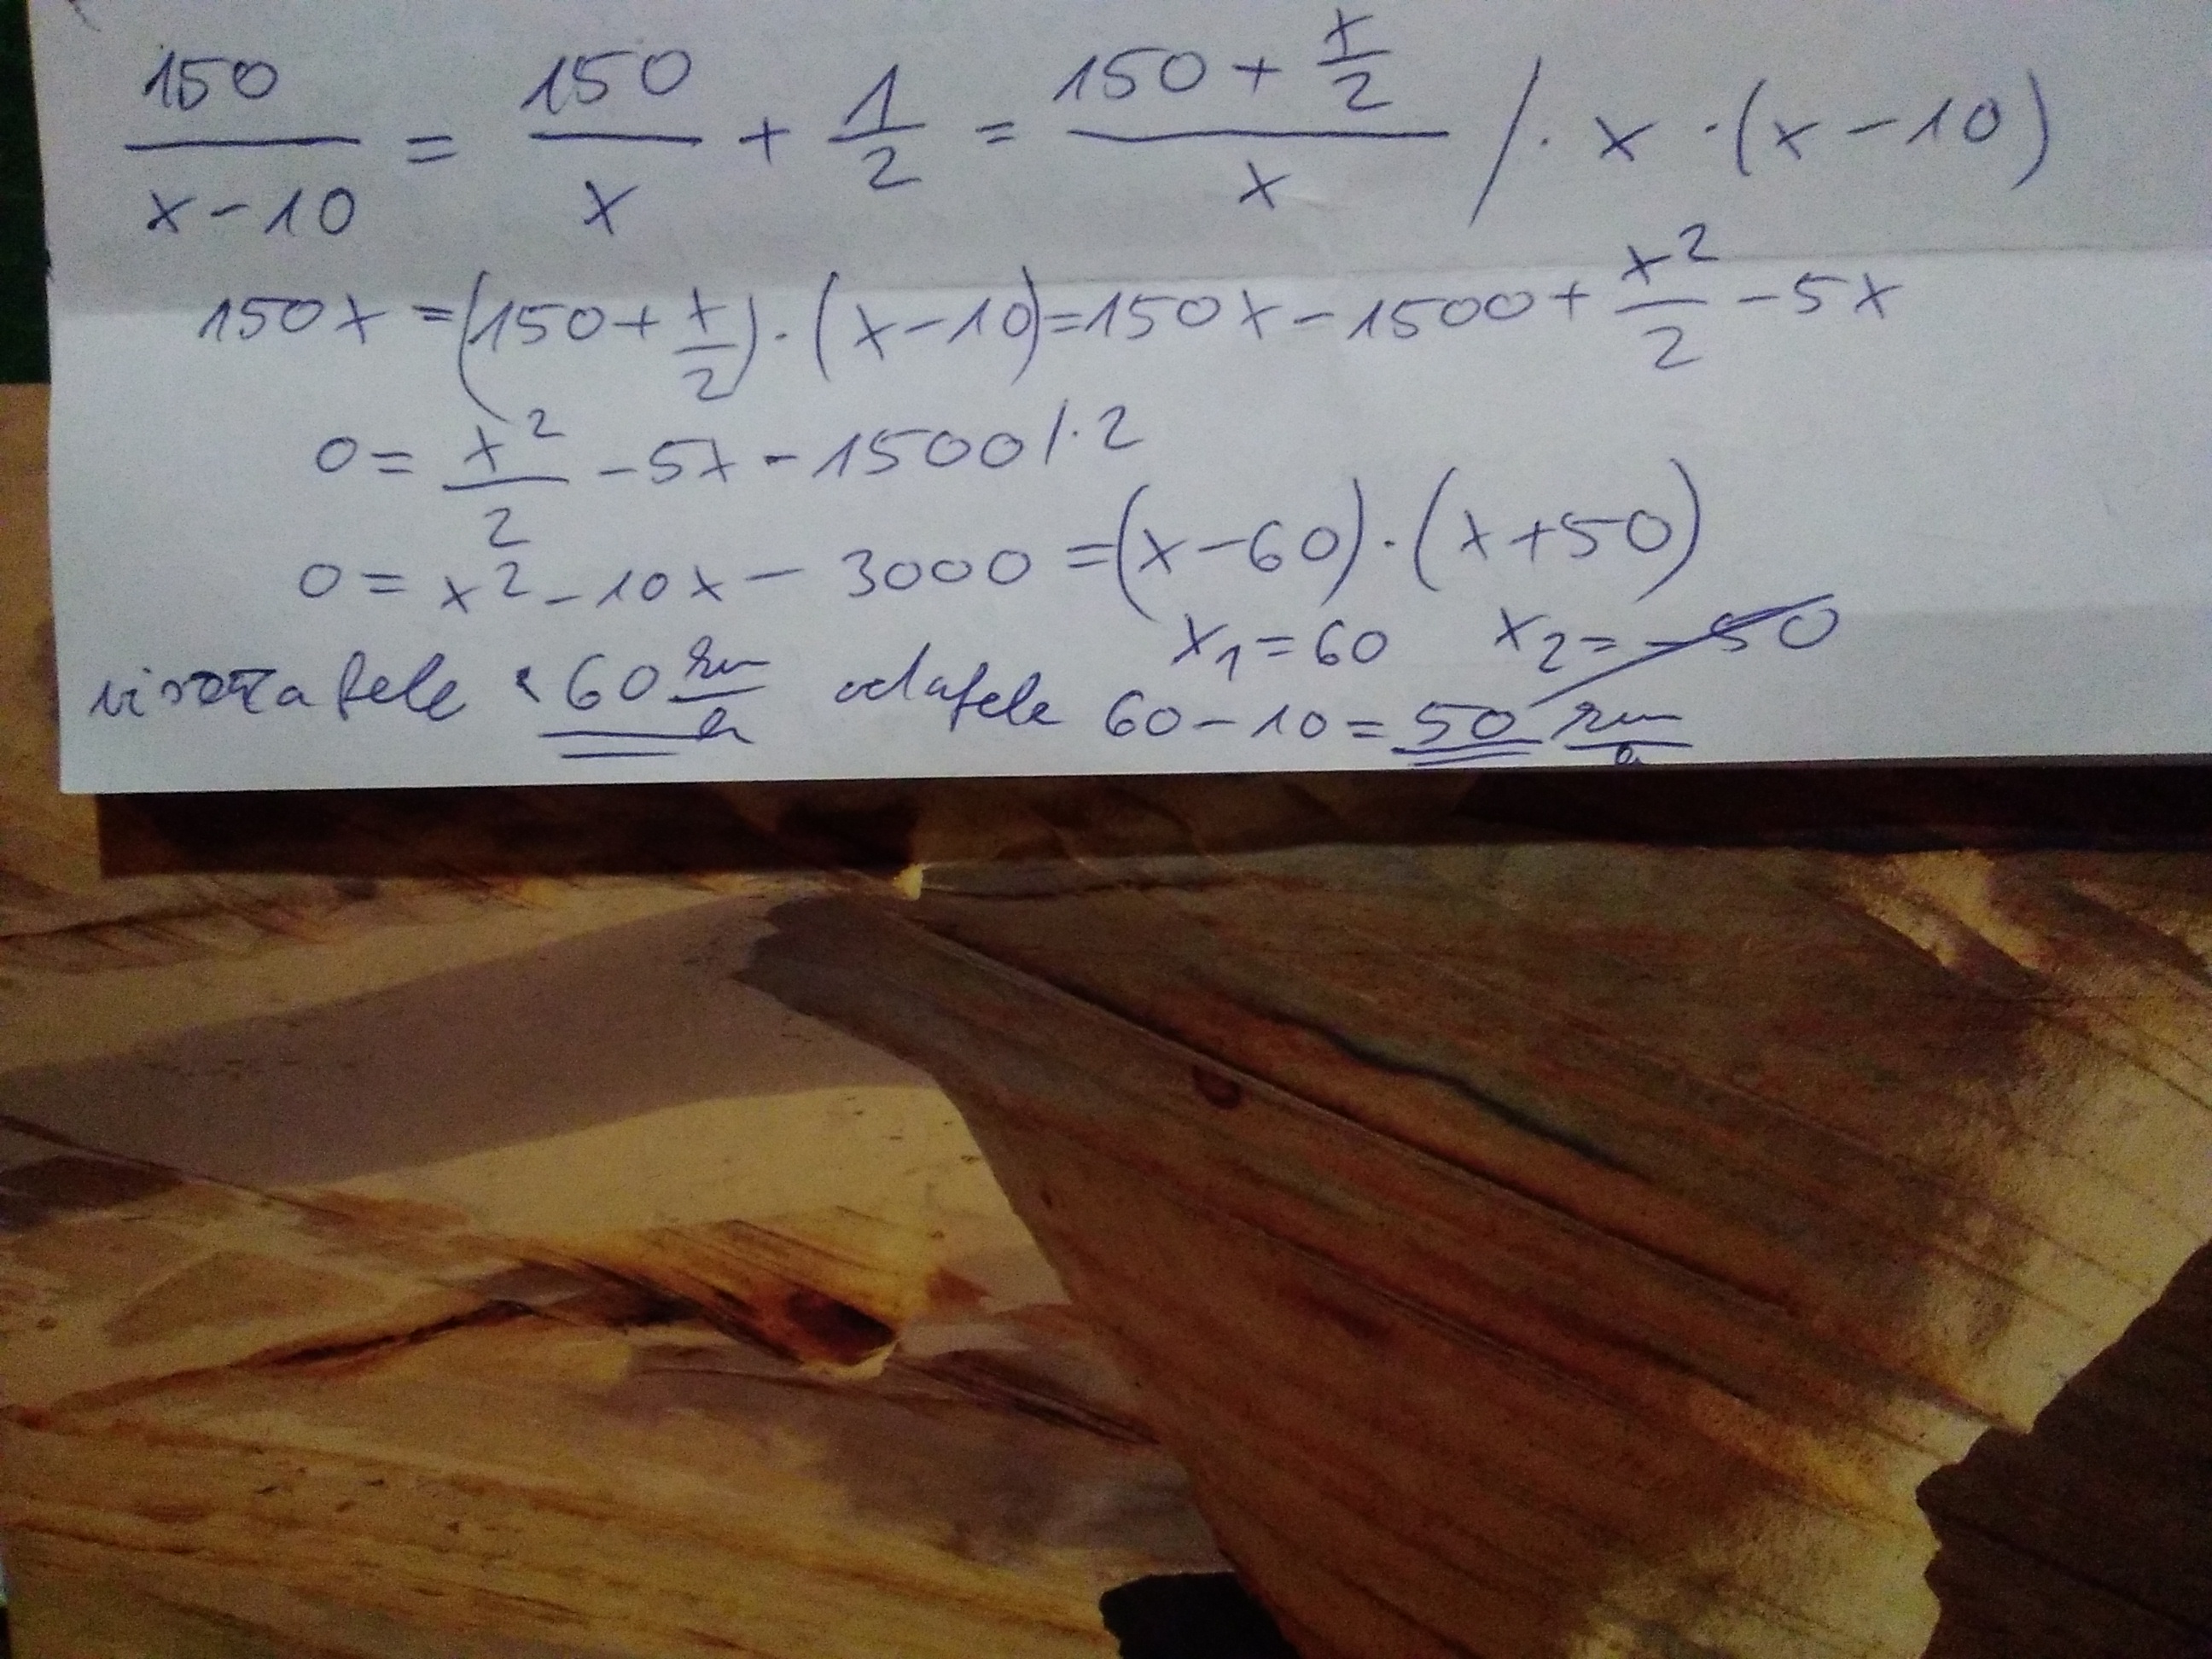 150/(x-10) = 150/x + 1/2 = (150 + x/2)/x /· x · (x-10)
150x = (150 + x/2) · (x-10) = 150x - 1500 + x²/2 - 5x
0 = x²/2 - 5x - 1500 /·2
0 = x² - 10x - 3000 = (x-60) · (x+50)
x₁ = 60 x₂ = -50
visszafele 60 km/h odafele 60-10 = 50 km/h